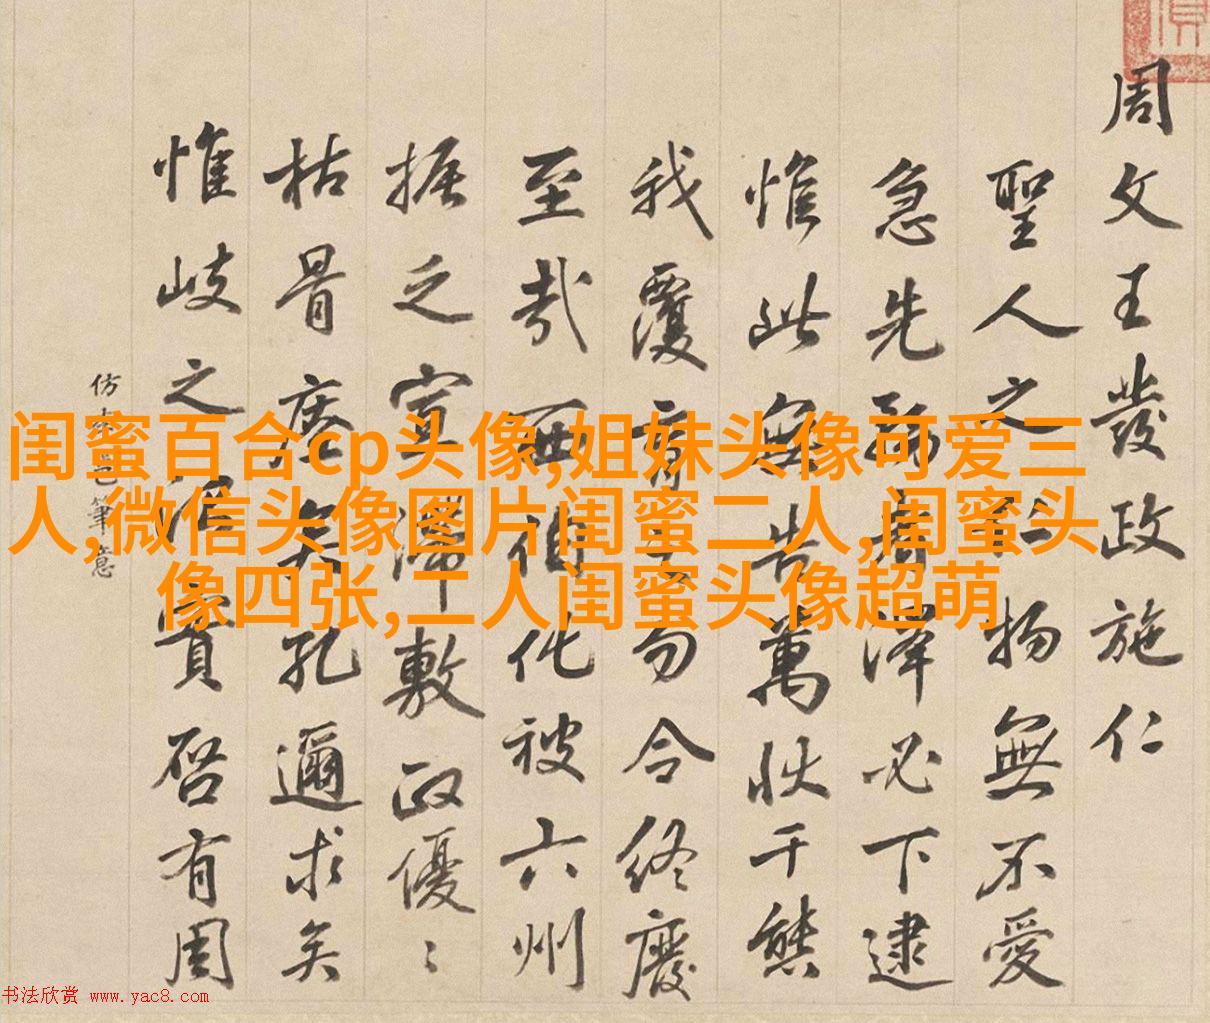 闺蜜百合cp头像,姐妹头像可爱三
人,微信头像图片闺蜜二人,闺蜜头
像四张,二人闺蜜头像超萌
周文王發政施仁
聖人之仁物無不愛
急先者澤必下逮
惟此無告萬狀千態
我覆勿令終廢
至哉西伯化被六州
振乏宣滯敷政優〻
枯骨瘞矣孔邇求矣
惟岐之實啓有周
仿筆意
书法欣赏 www.yac8.com